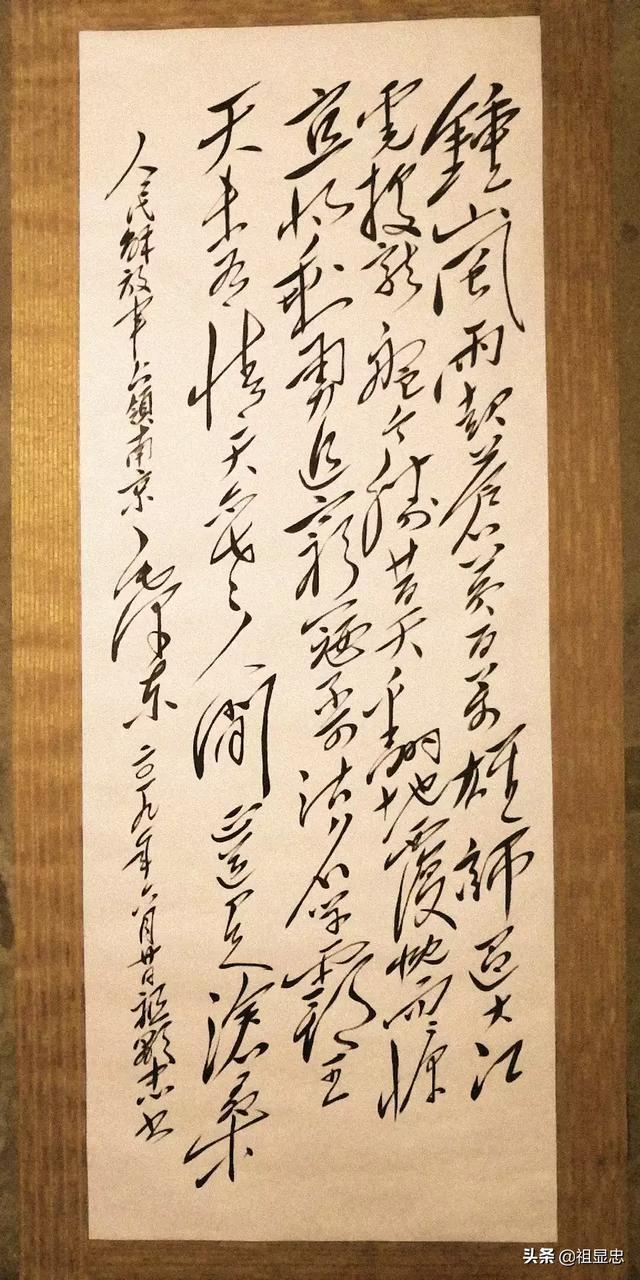 鍾山風雨起蒼黄百萬雄師過大江
虎踞龍盤今勝昔天翻地覆慨而慷
宜将剩勇追窮寇不可沽名學霸王
天若有情天亦老人間正道是滄桑
人民解放軍占領南京 毛澤東 二〇一九年六月廿日祖顯忠书
头条 @祖显忠